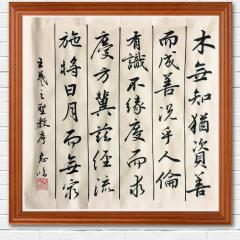 木無知猶資善
而成善況乎人倫
有識不緣慶而求
慶方冀茲經流
施將日月而無窮
王羲之聖教序